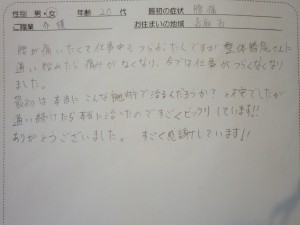 性別 男・女 年齢 20 代 最初の症状 腰痛
ご職業 介護 お住まいの地域 名取市
腰が痛いたくて仕事中もつらかったんですが整体院さんに
通い始めたら痛みがなくなり、今では仕事がつらくなくなり
ました。
最初は本当にこんな施術で治るんだろうか?と不安でしたが
通い続けたら本当に治ったのですごくビックリしています!!
ありがとうございました。すごく感謝しています!!